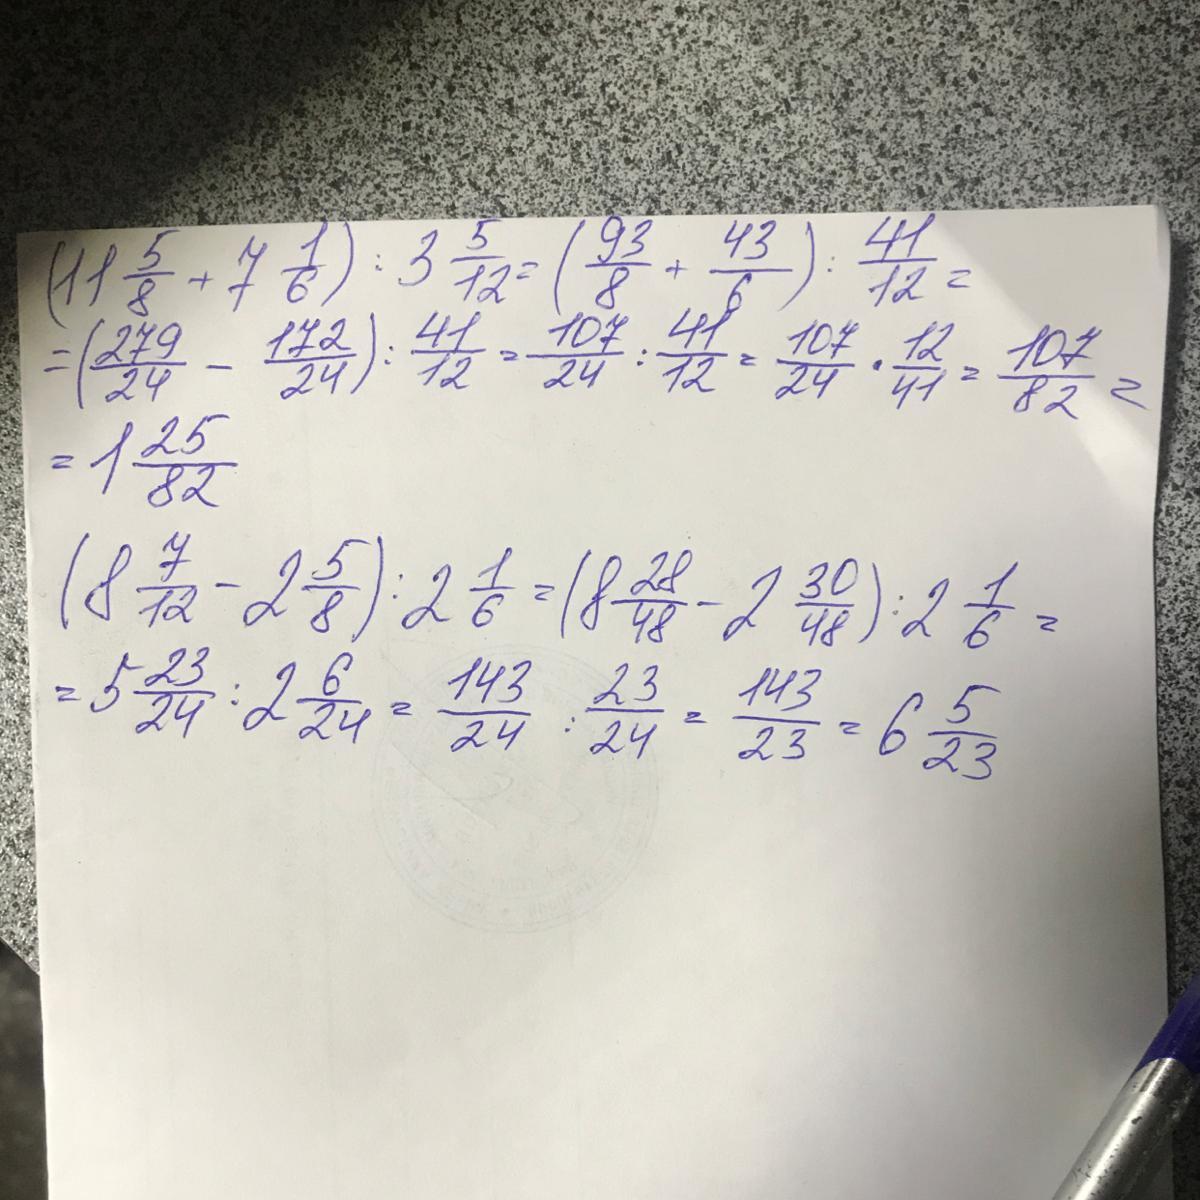 (11 5/8 + 7 1/6) : 3 5/12 = (93/8 + 43/6) : 41/12 =
= (279/24 - 172/24) : 41/12 = 107/24 : 41/12 = 107/24 · 12/41 = 107/82 =
= 1 25/82
(8 7/12 - 2 5/8) : 2 1/6 = (8 28/48 - 2 30/48) : 2 1/6 =
= 5 23/24 : 2 6/24 = 143/24 : 23/24 = 143/23 = 6 5/23